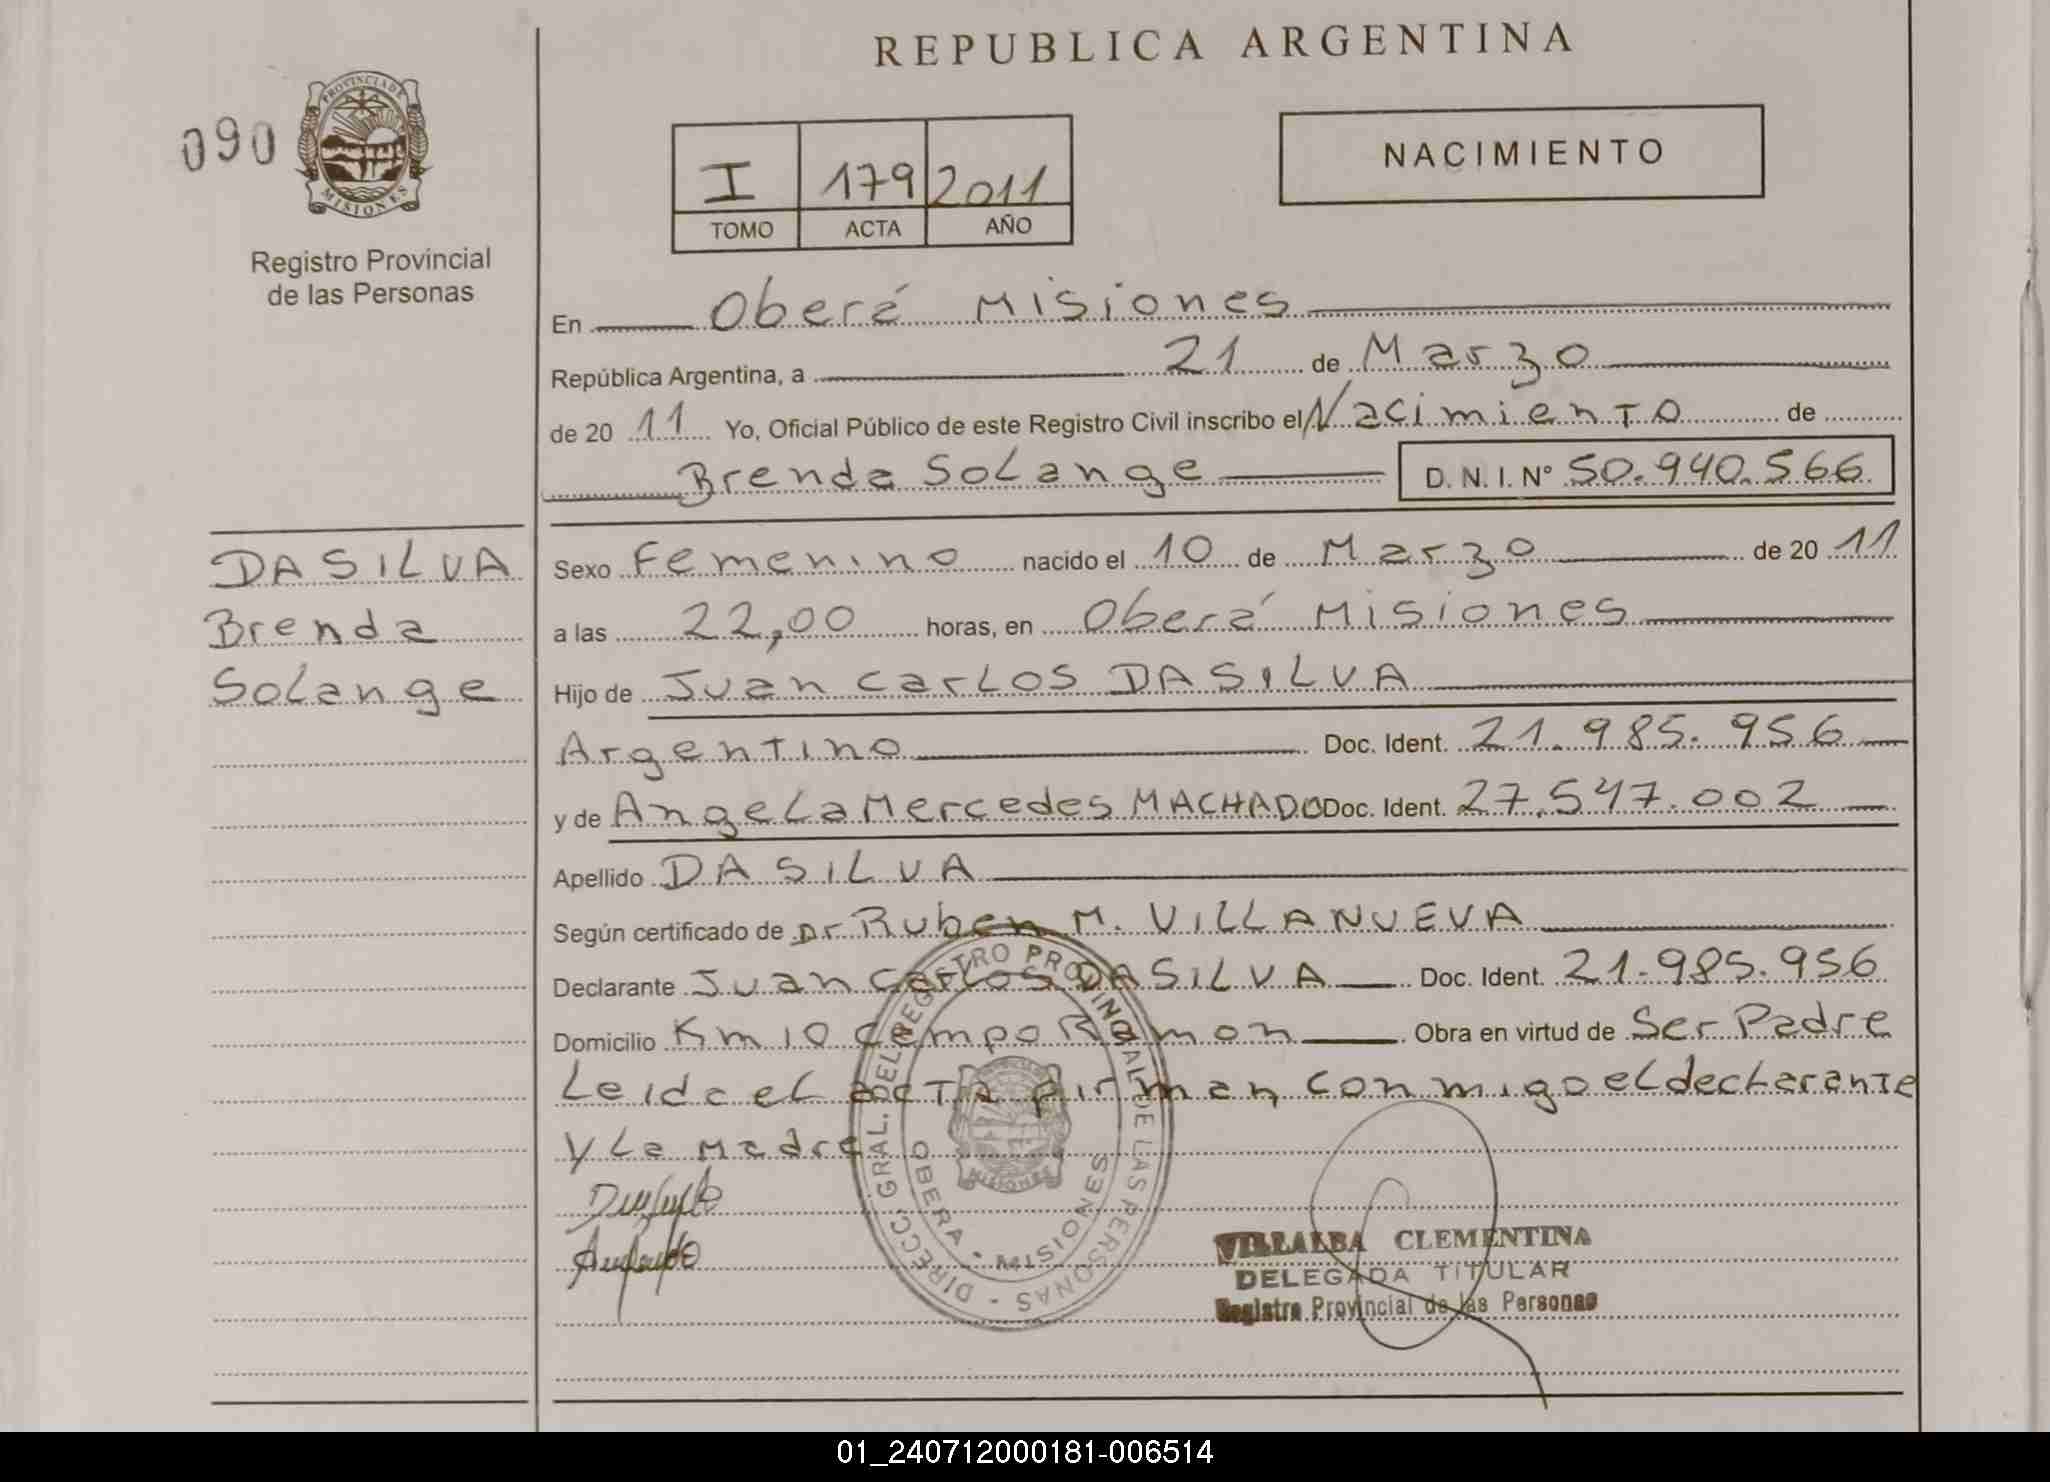 REPUBLICA ARGENTINA
090
PROVINCIA DE MISIONES
Registro Provincial
de las Personas
I 179 2011
TOMO ACTA AÑO
NACIMIENTO
En Oberá Misiones
República Argentina, a 21 de Marzo
de 20 11 Yo, Oficial Público de este Registro Civil inscribo el Nacimiento de
Brenda Solange D. N. I. N° 50.940.566
DA SILVA
Brenda
Solange
Sexo Femenino nacido el 10 de Marzo de 20 11
a las 22,00 horas, en Oberá Misiones
Hijo de Juan Carlos DA SILVA
Argentino Doc. Ident. 21.985.956
y de Angela Mercedes MACHADO Doc. Ident. 27.547.002
Apellido DA SILVA
Según certificado de Dr Ruben M. VILLANUEVA
Declarante Juan Carlos DA SILVA Doc. Ident. 21.985.956
Domicilio Km 10 Campo Ramon Obra en virtud de Ser Padre
Leida el acta firman conmigo el declarante
y la madre
DIRECC. GRAL. DEL REGISTRO PROVINCIAL DE LAS PERSONAS
OBERA - MISIONES
MISIONES
VILLALBA CLEMENTINA
DELEGADA TITULAR
Registro Provincial de las Personas
01_240712000181-006514